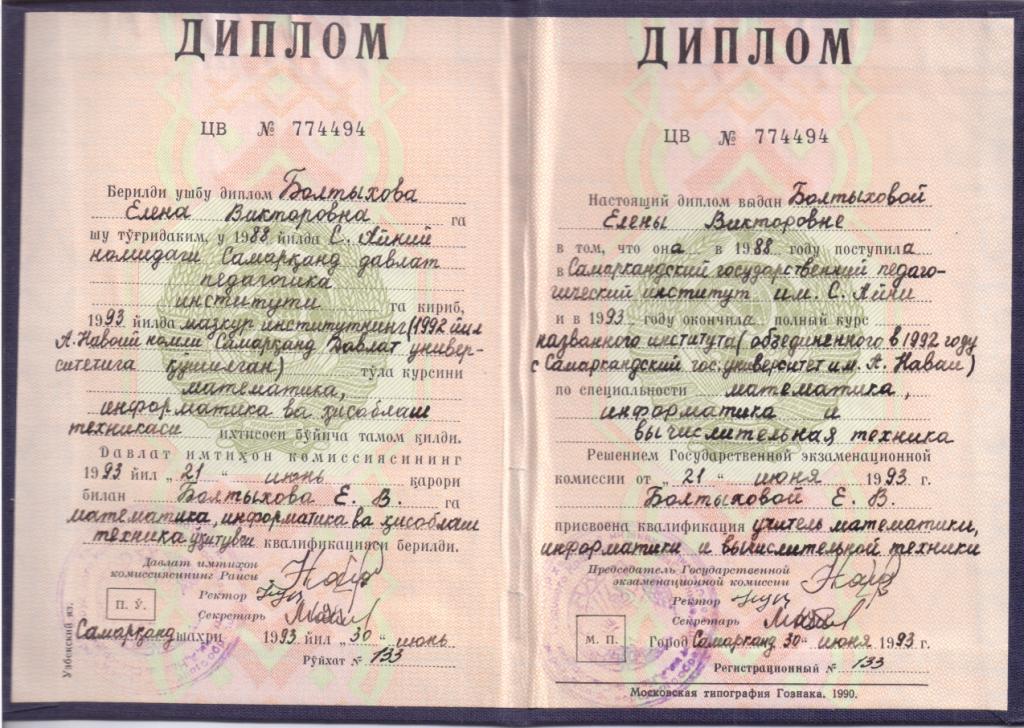 ДИПЛОМ
ЦВ № 774494
Берилди ушбу диплом Болтыхова
Елена Викторовна га
шу тўғридаким, у 1988 йилда С. Айний
номидаги Самарқанд давлат
педагогика
институти га кириб,
1993 йилда мазкур институтнинг (1992 йил
А.Навоий номли Самарқанд Давлат универ-
ситетига қўшилган) тўла курсини
математика,
информатика ва ҳисоблаш
техникаси ихтисоси бўйича тамом қилди.
Давлат имтиҳон комиссиясининг
1993 йил „21“ июнь қарори
билан Болтыхова Е. В. га
математика, информатика ва ҳисоблаш
техника ўқитувчи квалификацияси берилди.
Давлат имтиҳон
комиссиясининг Раиси
Ректор
Секретарь
П. Ў.
Самарқанд шахри 1993 йил „30“ июнь
Рўйхат № 133
Узбекский яз.
ДИПЛОМ
ЦВ № 774494
Настоящий диплом выдан Болтыховой
Елены Викторовне
в том, что она в 1988 году поступила
в Самаркандский государственный педаго-
гический институт им. С. Айни
и в 1993 году окончила полный курс
названного института (объединенного в 1992 году
с Самаркандский гос. университет им. А. Навои)
по специальности математика,
информатика и
вычислительная техника
Решением Государственной экзаменационной
комиссии от „21“ июня 1993 г.
Болтыховой Е. В.
присвоена квалификация учитель математики,
информатики и вычислительной техники
Председатель Государственной
экзаменационной комиссии
Ректор
Секретарь
М. П.
Город Самарканд 30“ июня 1993 г.
Регистрационный № 133
Московская типография Гознака. 1990.